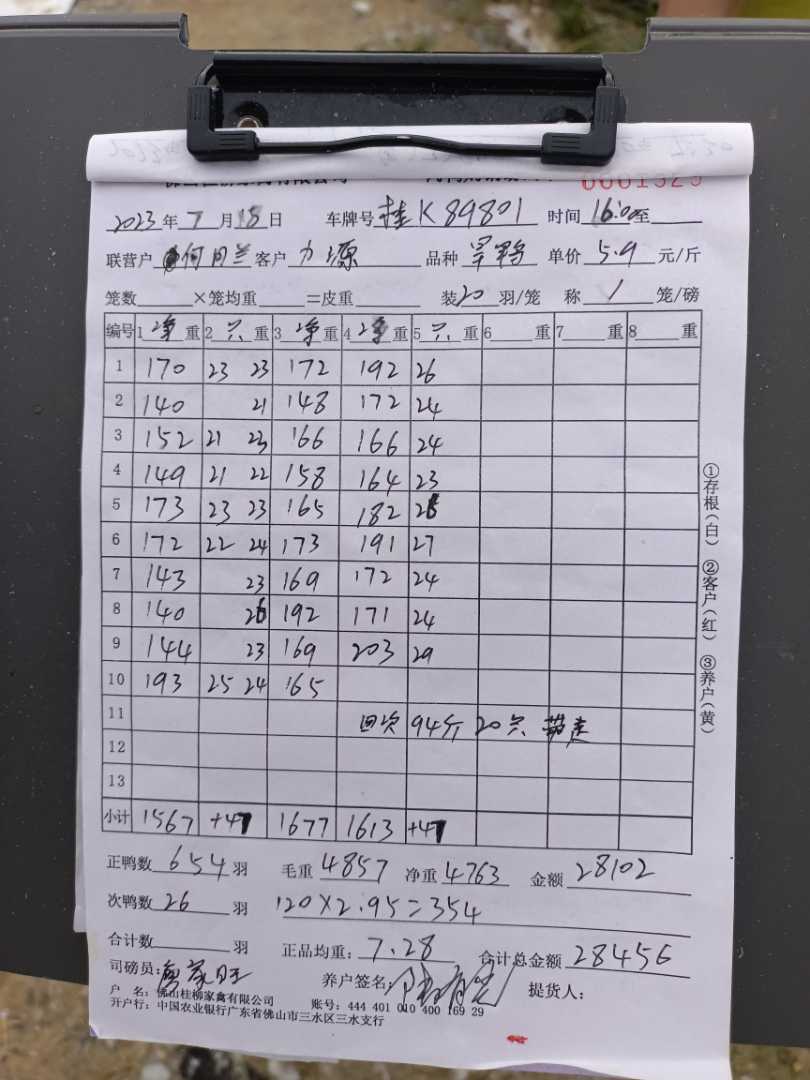 0001329
2023年7月18日 车牌号桂K89801 时间16:00至
联营户何月兰 客户力源 品种 单价5.9元/斤
笼数 ×笼均重 =皮重 装20羽/笼 称1笼/磅
编号 1净重 2只重 3净重 4净重 5只重 6重 7重 8重
1 170 23 23 172 192 26
2 140 21 148 172 24
3 152 21 23 166 166 24
4 149 21 22 158 164 23
5 173 23 23 165 182 26
6 172 22 24 173 191 27
7 143 23 169 172 24
8 140 26 192 171 24
9 144 23 169 203 29
10 193 25 24 165
11 回次94斤20只带走
12
13
小计 1567 +47 1677 1613 +47
正鸭数654羽 毛重4857 净重4763 金额28102
次鸭数26羽 120×2.95=354
合计数 羽 正品均重:7.28 合计总金额28456
司磅员: 养户签名: 提货人:
户 名:佛山桂柳家禽有限公司 账号:444 401 010 400 169 29
开户行:中国农业银行广东省佛山市三水区三水支行
①存根(白) ②客户(红) ③养户(黄)